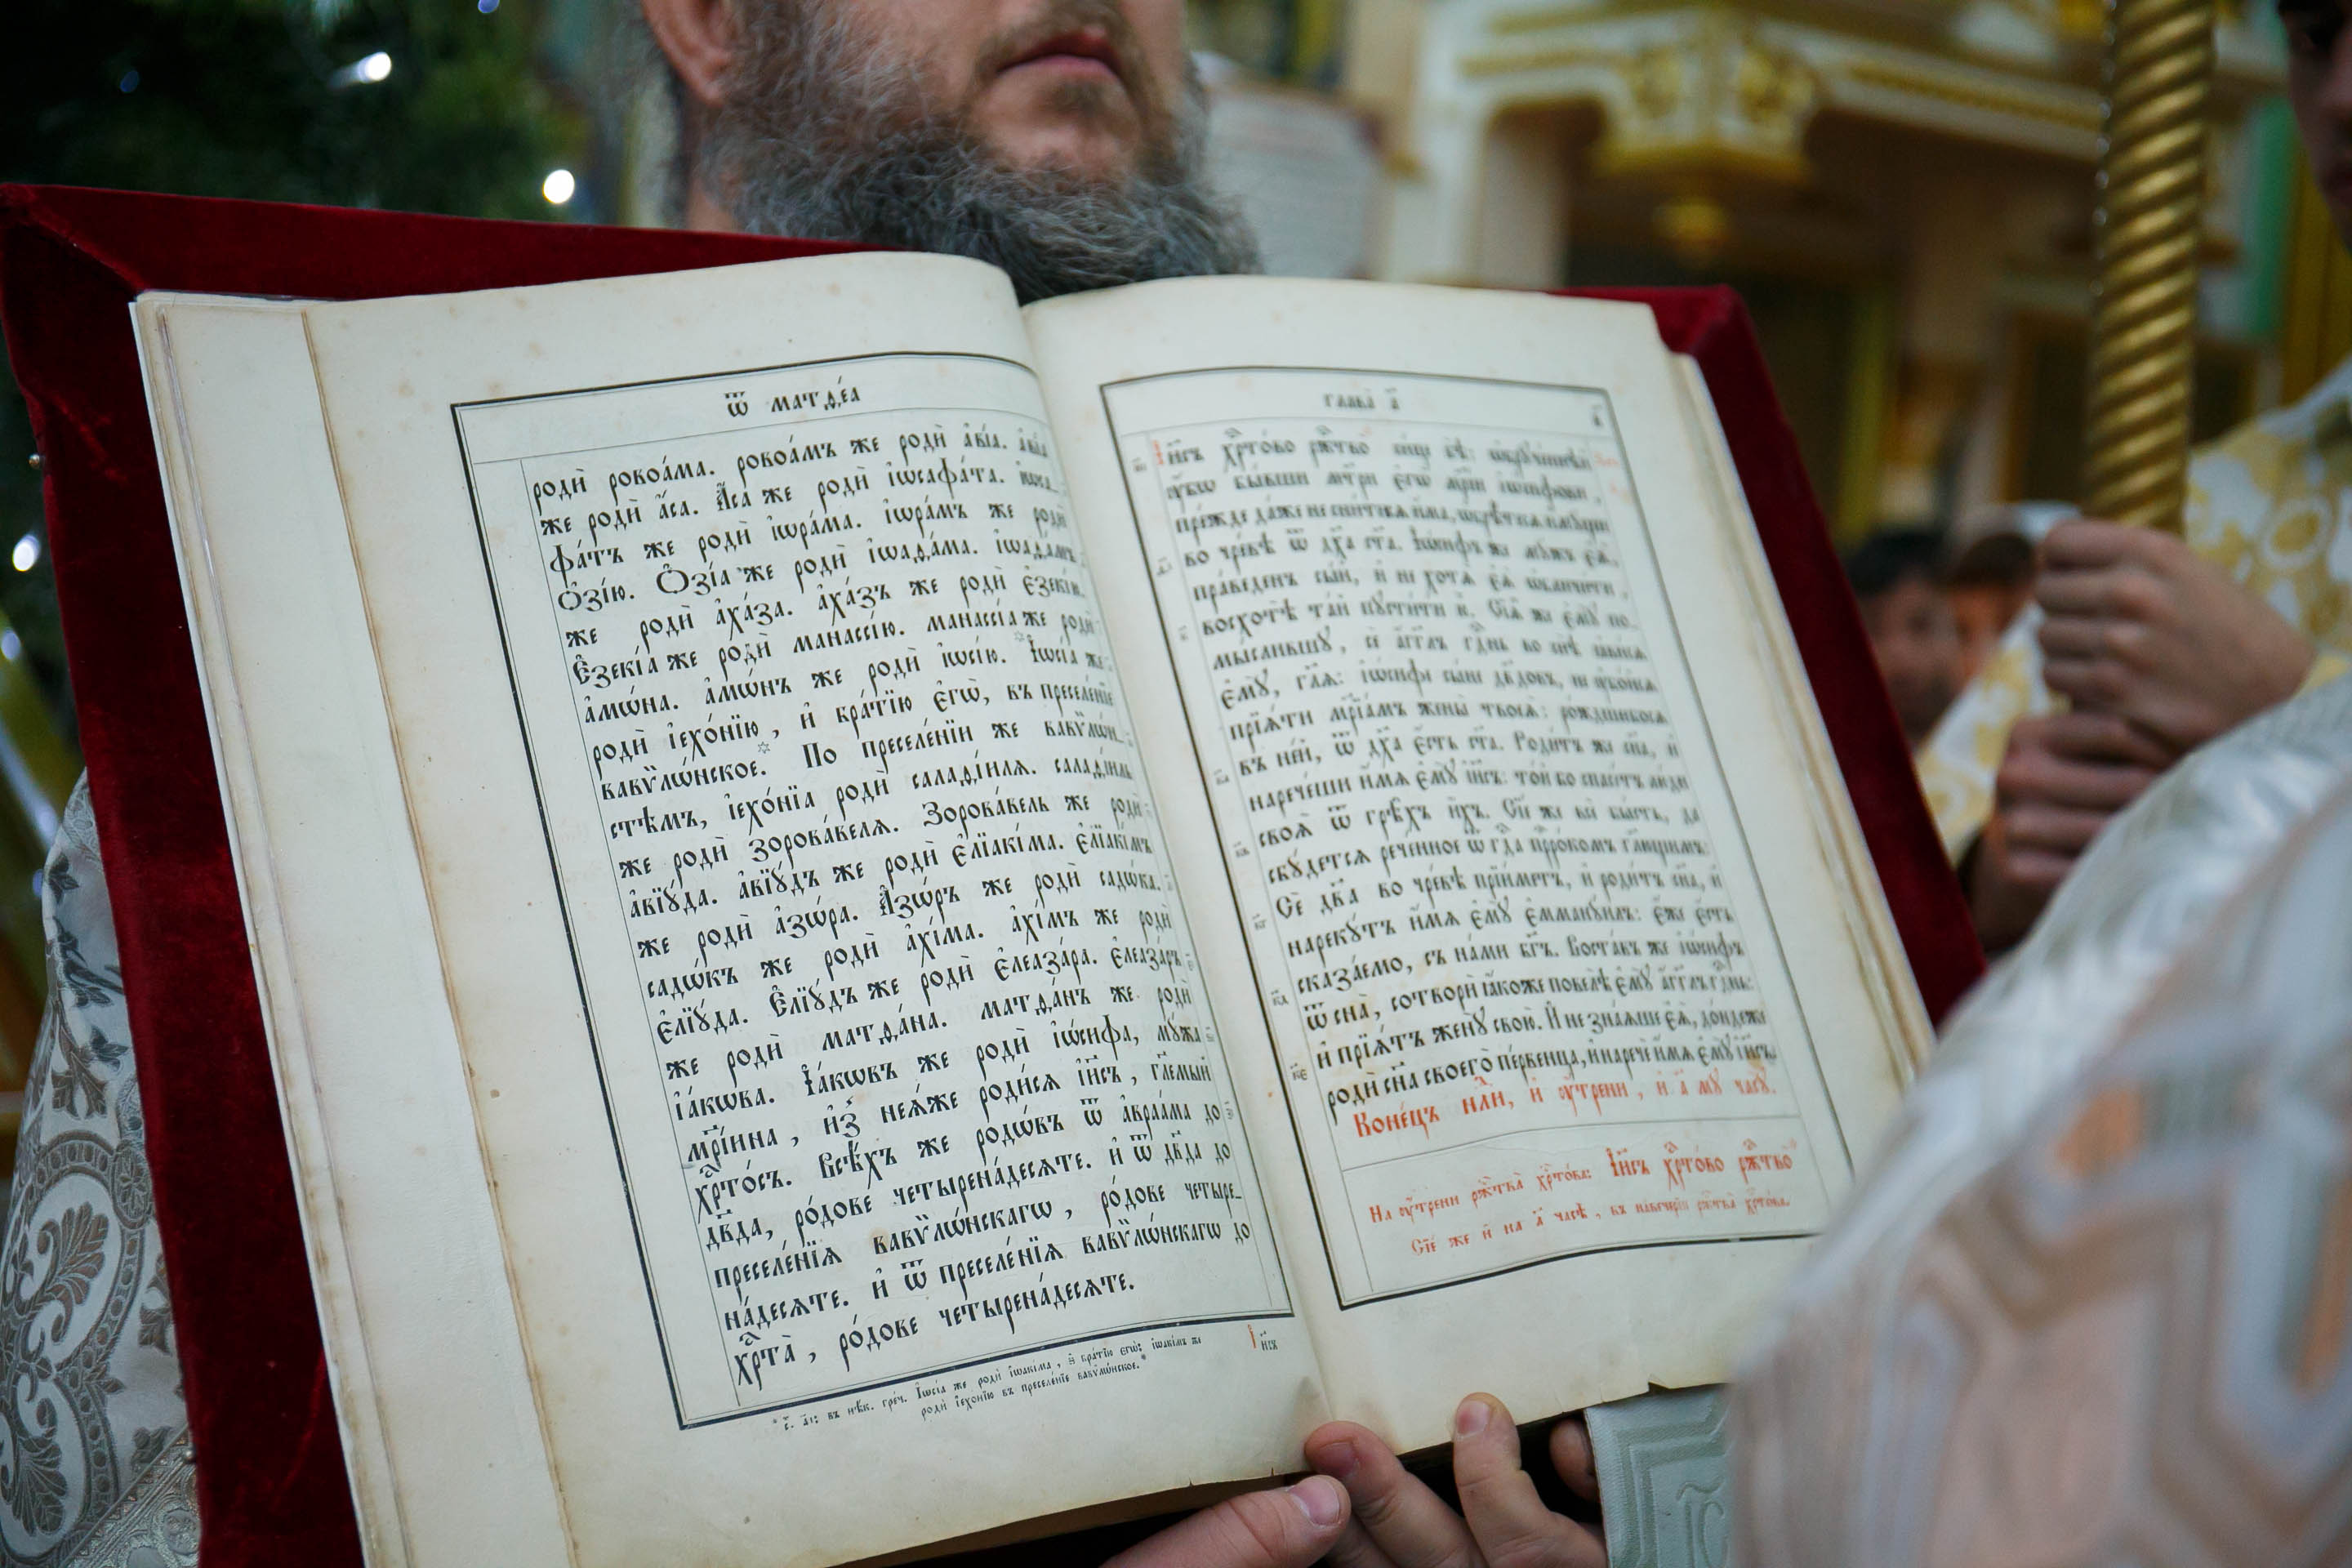 Ѿ матѳе́а
родѝ ровоа́ма. ровоа́мъ же родѝ а҆ві́а. а҆ві́а
же родѝ а҆́са. А҆́са же родѝ і҆ѡсафа́та. і҆ѡса_
фа́тъ же родѝ і҆ѡра́ма. і҆ѡра́мъ же родѝ
Ѻ҆зі́ю. Ѻ҆зі́а же родѝ і҆ѡаѳа́ма. і҆ѡаѳа́мъ
же родѝ а҆ха́за. а҆ха́зъ же родѝ є҆зекі́ю.
Є҆зекі́а же родѝ манассі́ю. манассі́а же родѝ
а҆мѡ́на. а҆мѡ́нъ же родѝ і҆ѡсі́ю. І҆ѡсі́а же
родѝ і҆ехо́нїю, и҆ бра́тїю є҆гѡ̀, въ преселе́нїе
вавѷлѡ́нское. По преселе́нїи же вавѷлѡ́н_
стѣмъ, і҆ехо́нїа родѝ салаѳі́илѧ. салаѳі́иль
же родѝ зорова́велѧ. Зорова́вель же родѝ
а҆вїꙋ́да. а҆вїꙋ́дъ же родѝ є҆лїакі́ма. є҆лїакі́мъ
же родѝ а҆зѡ́ра. А҆зѡ́ръ же родѝ садѡ́ка.
садѡ́къ же родѝ а҆хі́ма. а҆хі́мъ же родѝ
є҆лїꙋ́да. Є҆лїꙋ́дъ же родѝ є҆леаза́ра. є҆леаза́ръ
же родѝ матѳа́на. матѳа́нъ же родѝ
і҆а́кѡва. І҆а́кѡвъ же родѝ і҆ѡ́сифа, мꙋ́жа
мр҃і́ина, и҆з̾ неѧ́же роди́сѧ і҆и҃съ, гл҃емый
хрⷭ҇то́съ. Всѣ́хъ же родѡ́въ ѿ а҆враа́ма до
дв҃да, ро́дове четырена́десѧте. и҆ ѿ дв҃да до
преселе́нїѧ вавѷлѡ́нскагѡ, ро́дове четыре_
на́десѧте. и҆ ѿ преселе́нїѧ вавѷлѡ́нскагѡ до
хрⷭ҇та̀, ро́дове четырена́десѧте.
въ нѣ́к. гре́ч. І҆ѡсі́а же родѝ і҆ѡакі́ма, и҆ бра́тїю є҆гѡ̀: і҆ѡакі́мъ же
родѝ і҆ехо́нїю въ преселе́нїе вавѷлѡ́нское.
І҆и҃съ
глава̀ а҃
І҆и҃съ хрⷭ҇то́во ржⷭ҇тво̀ си́це бѣ̀: ѡ҆брꙋче́ннѣй
бо бы́вши мт҃ри є҆гѡ̀ мр҃і́и і҆ѡ́сифови,
пре́жде да́же не сни́тисѧ и҆́ма, ѡ҆брѣ́тесѧ и҆мꙋ́щи
во чре́вѣ ѿ дх҃а ст҃а. І҆ѡ́сифъ же мꙋ́жъ є҆ѧ̀,
пра́веденъ сы́й, и҆ не хотѧ̀ є҆ѧ̀ ѡ҆бличи́ти,
восхотѣ̀ та́й пꙋсти́ти ю҆̀. Сїѧ̑ же є҆мꙋ̀ по_
мы́слившꙋ, сѐ а҆́гг҃лъ гдⷭ҇нь во снѣ̀ ꙗ҆ви́сѧ
є҆мꙋ̀, гл҃ѧ: і҆ѡ́сифе сы́не дв҃довъ, не ᲂу҆бо́йсѧ
прїѧ́ти мр҃їа́мъ жены̀ твоеѧ̀: ро́ждшеебосѧ
въ не́й, ѿ дх҃а є҆́сть ст҃а. Роди́тъ же сн҃а, и҆
нарече́ши и҆́мѧ є҆мꙋ̀ і҆и҃съ: то́й бо спасе́тъ лю́ди
своѧ̑ ѿ грѣ̑хъ и҆́хъ. Сїе́ же всѐ бы́сть, да
сбꙋ́детсѧ рече́нное ѿ гдⷭ҇а прⷪ҇ро́комъ гл҃ющимъ:
Сѐ дв҃а во чре́вѣ прїи́метъ, и҆ роди́тъ сн҃а, и҆
нарекꙋ́тъ и҆́мѧ є҆мꙋ̀ є҆мманꙋи́лъ: є҆́же є҆́сть
сказа́емо, съ на́ми бг҃ъ. Воста́въ же і҆ѡ́сифъ
ѿ сна̀, сотворѝ ꙗ҆́коже повелѣ̀ є҆мꙋ̀ а҆́гг҃лъ гдⷭ҇нь:
и҆ прїѧ́тъ женꙋ̀ свою̀. И҆ не зна́ѧше є҆ѧ̀, до́ндеже
родѝ сн҃а своего̀ пе́рвенца, и҆ наречѐ и҆́мѧ є҆мꙋ̀ і҆и҃съ.
Коне́цъ нлⷣи, и҆ ᲂу҆́трени, и҆ а҃ мꙋ часꙋ̀.
На ᲂу҆́трени ржⷭ҇тва̀ хрⷭ҇то́ва: І҆и҃съ хрⷭ҇то́во ржⷭ҇тво̀
Сїе́ же и҆ на а҃ часѣ̀, въ наве́черїи ржⷭ҇тва̀ хрⷭ҇то́ва.